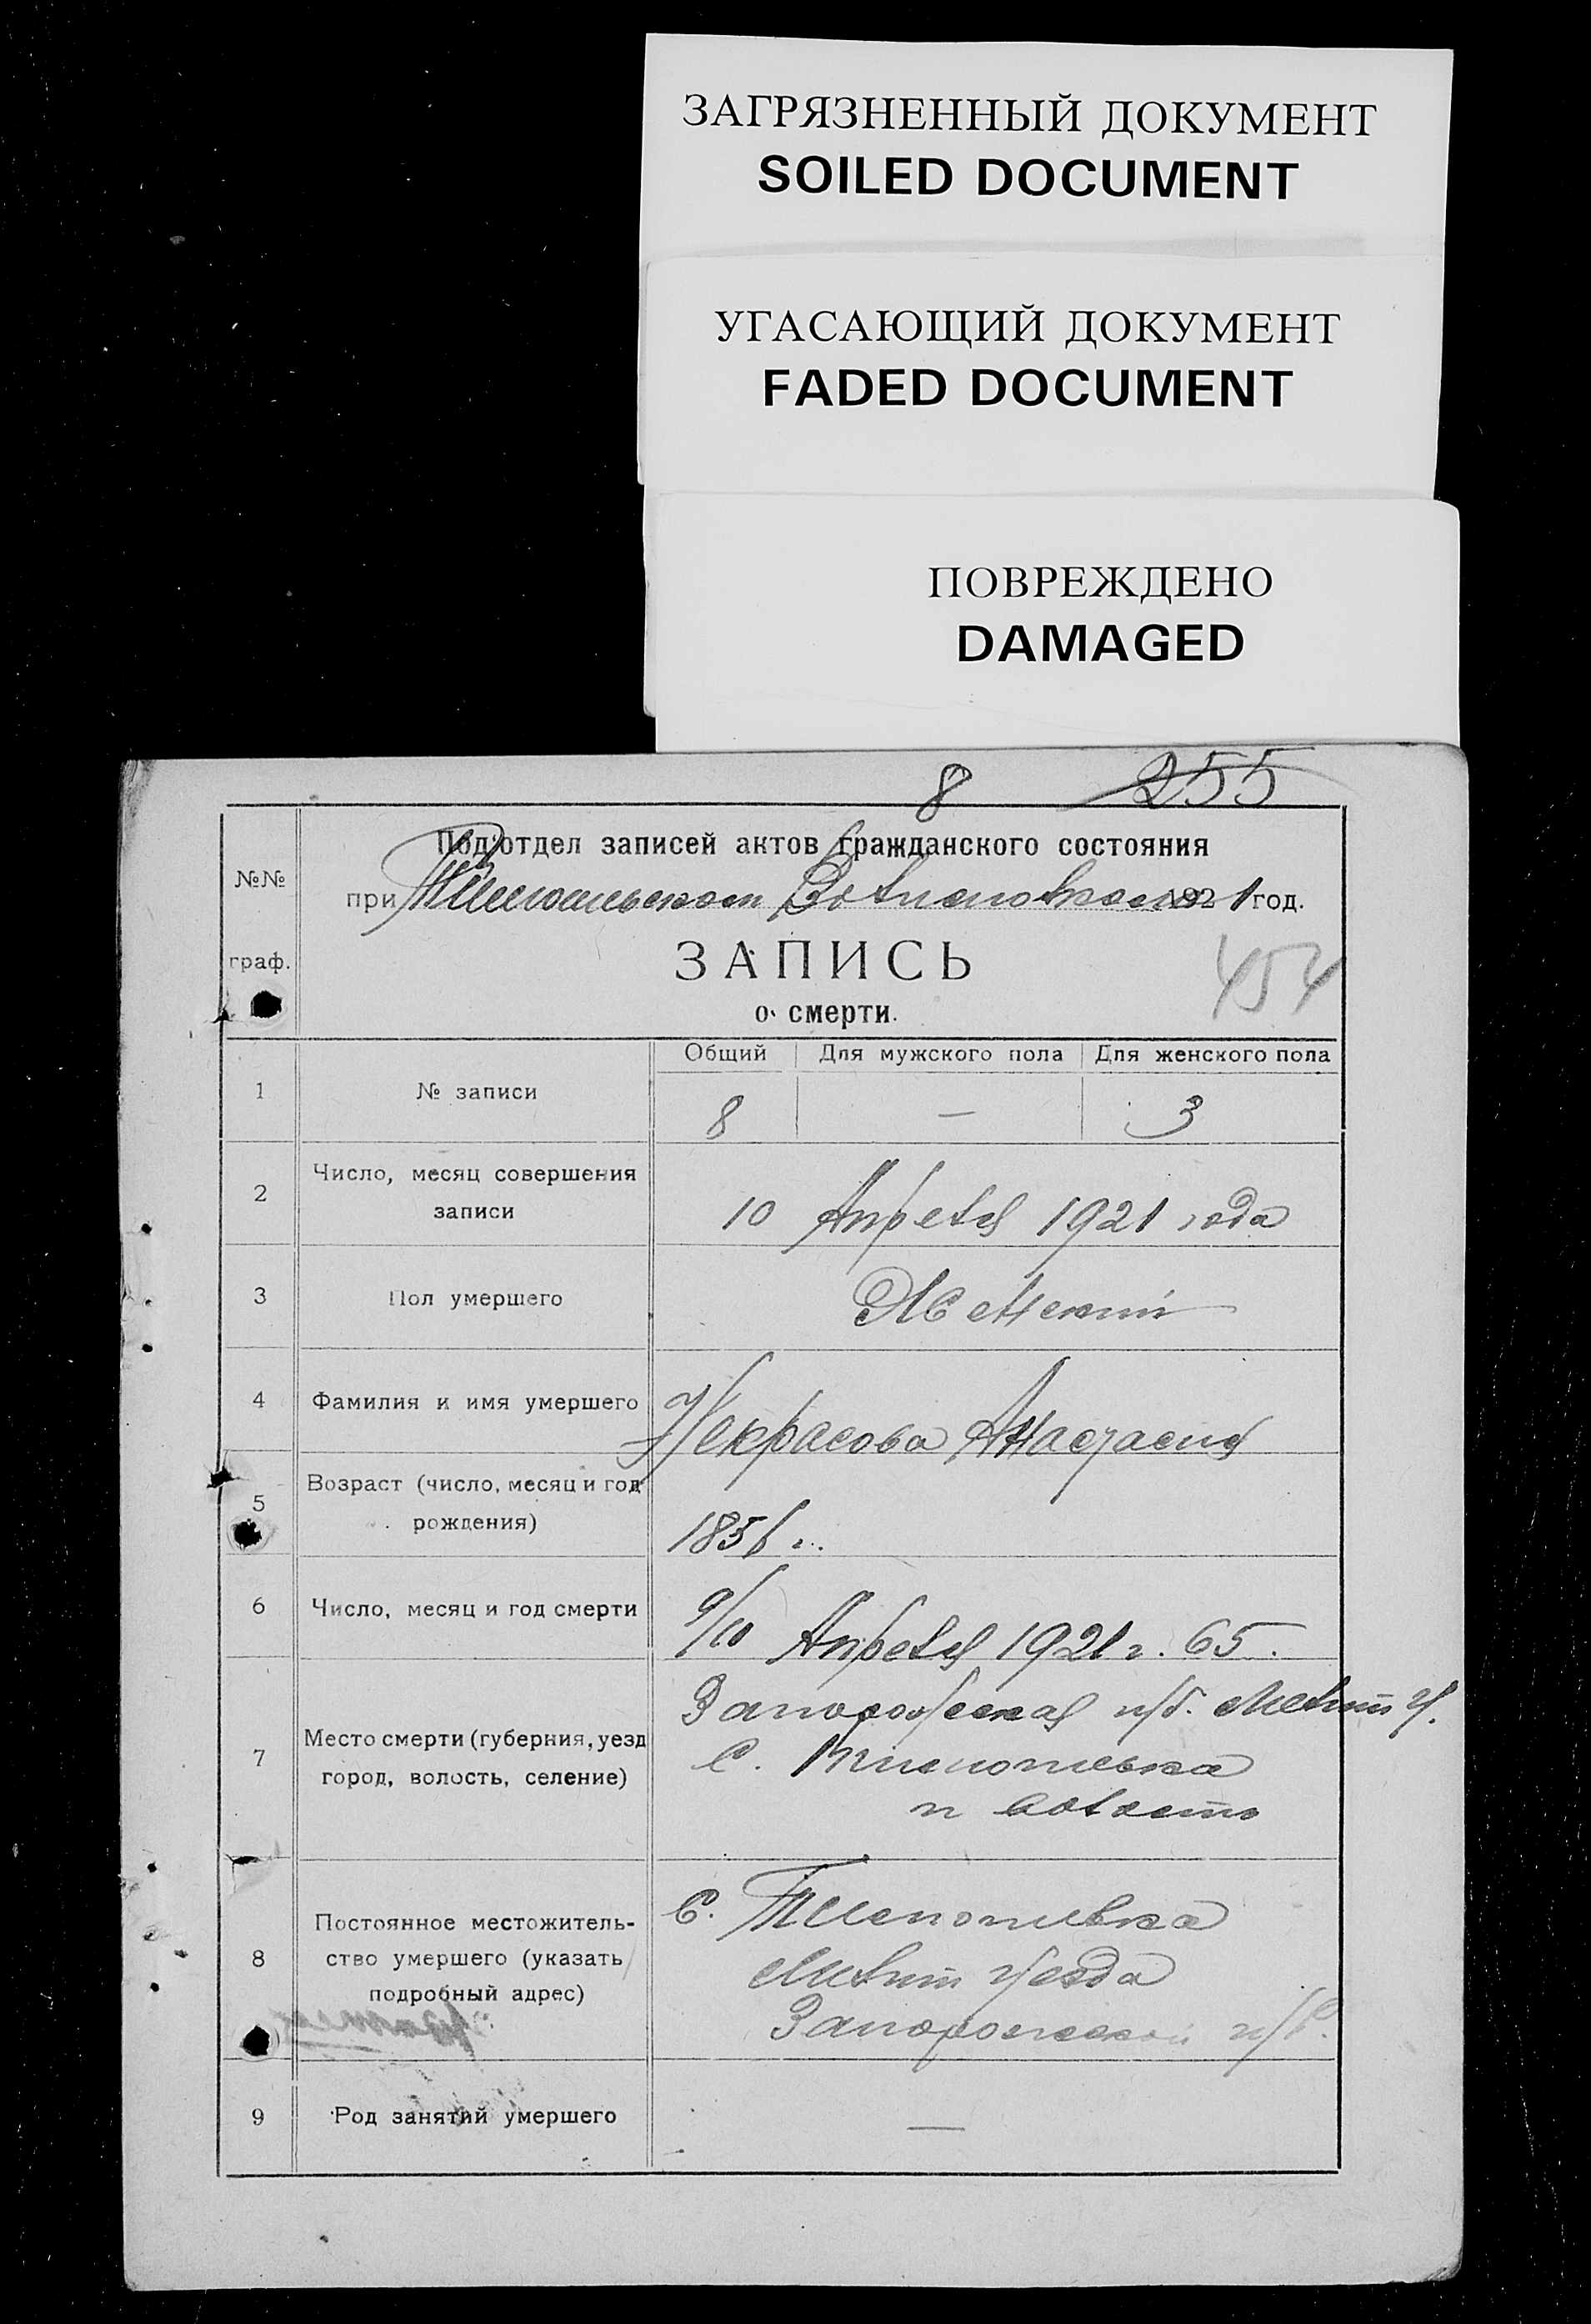 ЗАГРЯЗНЕННЫЙ ДОКУМЕНТ
SOILED DOCUMENT
УГАСАЮЩИЙ ДОКУМЕНТ
FADED DOCUMENT
ПОВРЕЖДЕНО
DAMAGED
8 255
№№ граф.
Под'отдел записей актов гражданского состояния
при 1921 год.
ЗАПИСЬ
454
о смерти.
Общий Для мужского пола Для женского пола
1 № записи 8 — 3
2 Число, месяц совершения
записи
10 Апреля 1921 года
3 Пол умершего Женский
4 Фамилия и имя умершего Некрасова Анастасия
5 Возраст (число, месяц и год
рождения)
1856 г.
6 Число, месяц и год смерти 9/10 Апреля 1921 г. 65.
7 Место смерти (губерния, уезд
город, волость, селение)
Запорожская г/б. Мелит у.
С.
и волость
8 Постоянное местожитель-
ство умершего (указать
подробный адрес)
С.
Мелит уезда
Запорожской г/б.
9 Род занятий умершего —